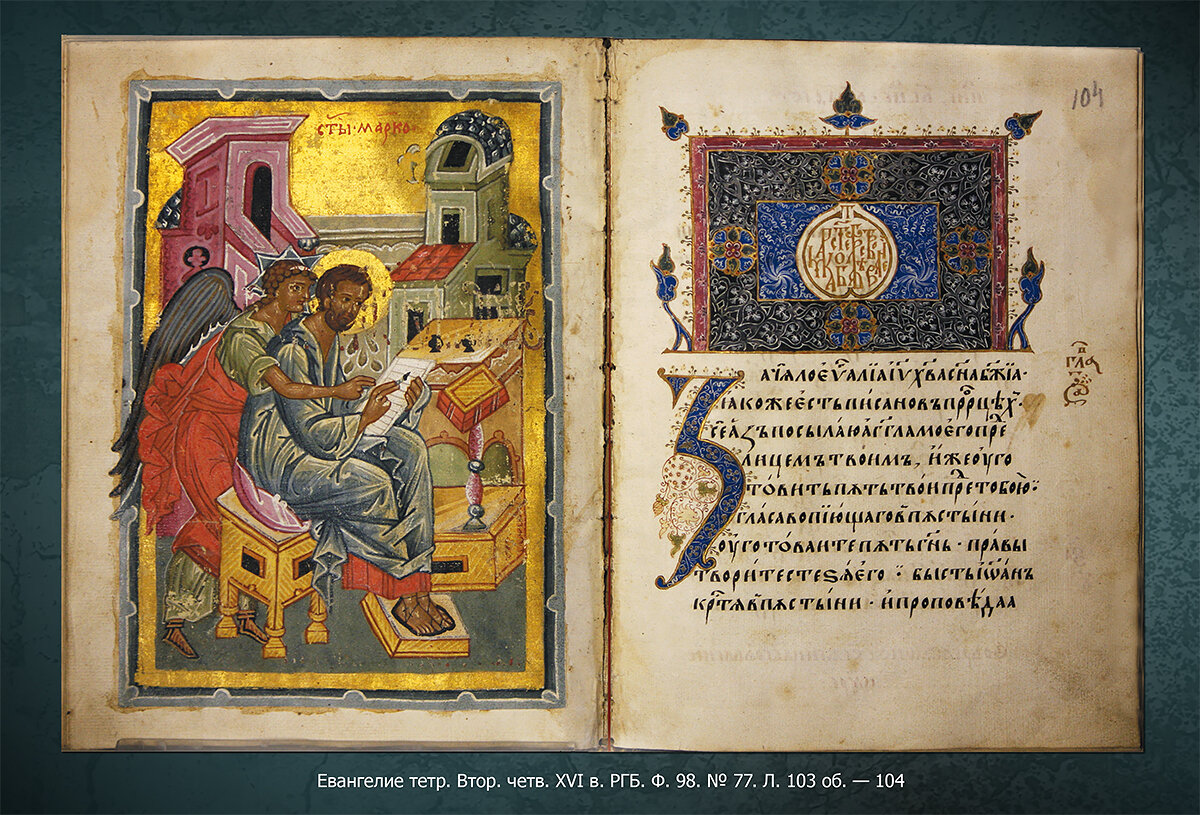 ст҃ы · марко
104
Зачѧло еѵⷢ҇алїа іѵ х҃ва сн҃а бж҃їа ·
ꙗкоже есть писано въ прⷪ҇рцѣхъ ·
се азъ посылаю аг҃гла моего преⷣ
лицемъ твоимъ, иже оуго
товить пѫть твои преⷣ тобою :
гласъ вопїющаго в пѫстыни ·
оуготоваите пѫть гн҃ь · правы
творите стеѕѧ его : бысть іѡанъ
крⷭ҇тѧ в пѫстыни · и проповѣдаа
Евангелие тетр. Втор. четв. XVI в. РГБ. Ф. 98. № 77. Л. 103 об. — 104